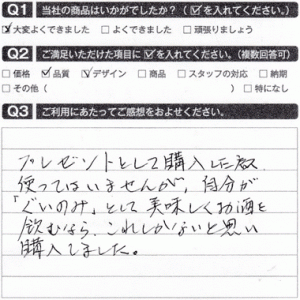 Q1 当社の商品はいかがでしたか？（☑を入れてください。）
☑大変よくできました □よくできました □頑張りましょう
Q2 ご満足いただけた項目に☑を入れてください。（複数回答可）
□価格 ☑品質 ☑デザイン □商品 □スタッフの対応 □納期
□その他（ ） □特になし
Q3 ご利用にあたってご感想をおよせください。
プレゼントとして購入した為
使ってはいませんが、自分が
「ぐいのみ」として美味しくお酒を
飲むなら、これしかないと思い
購入しました。